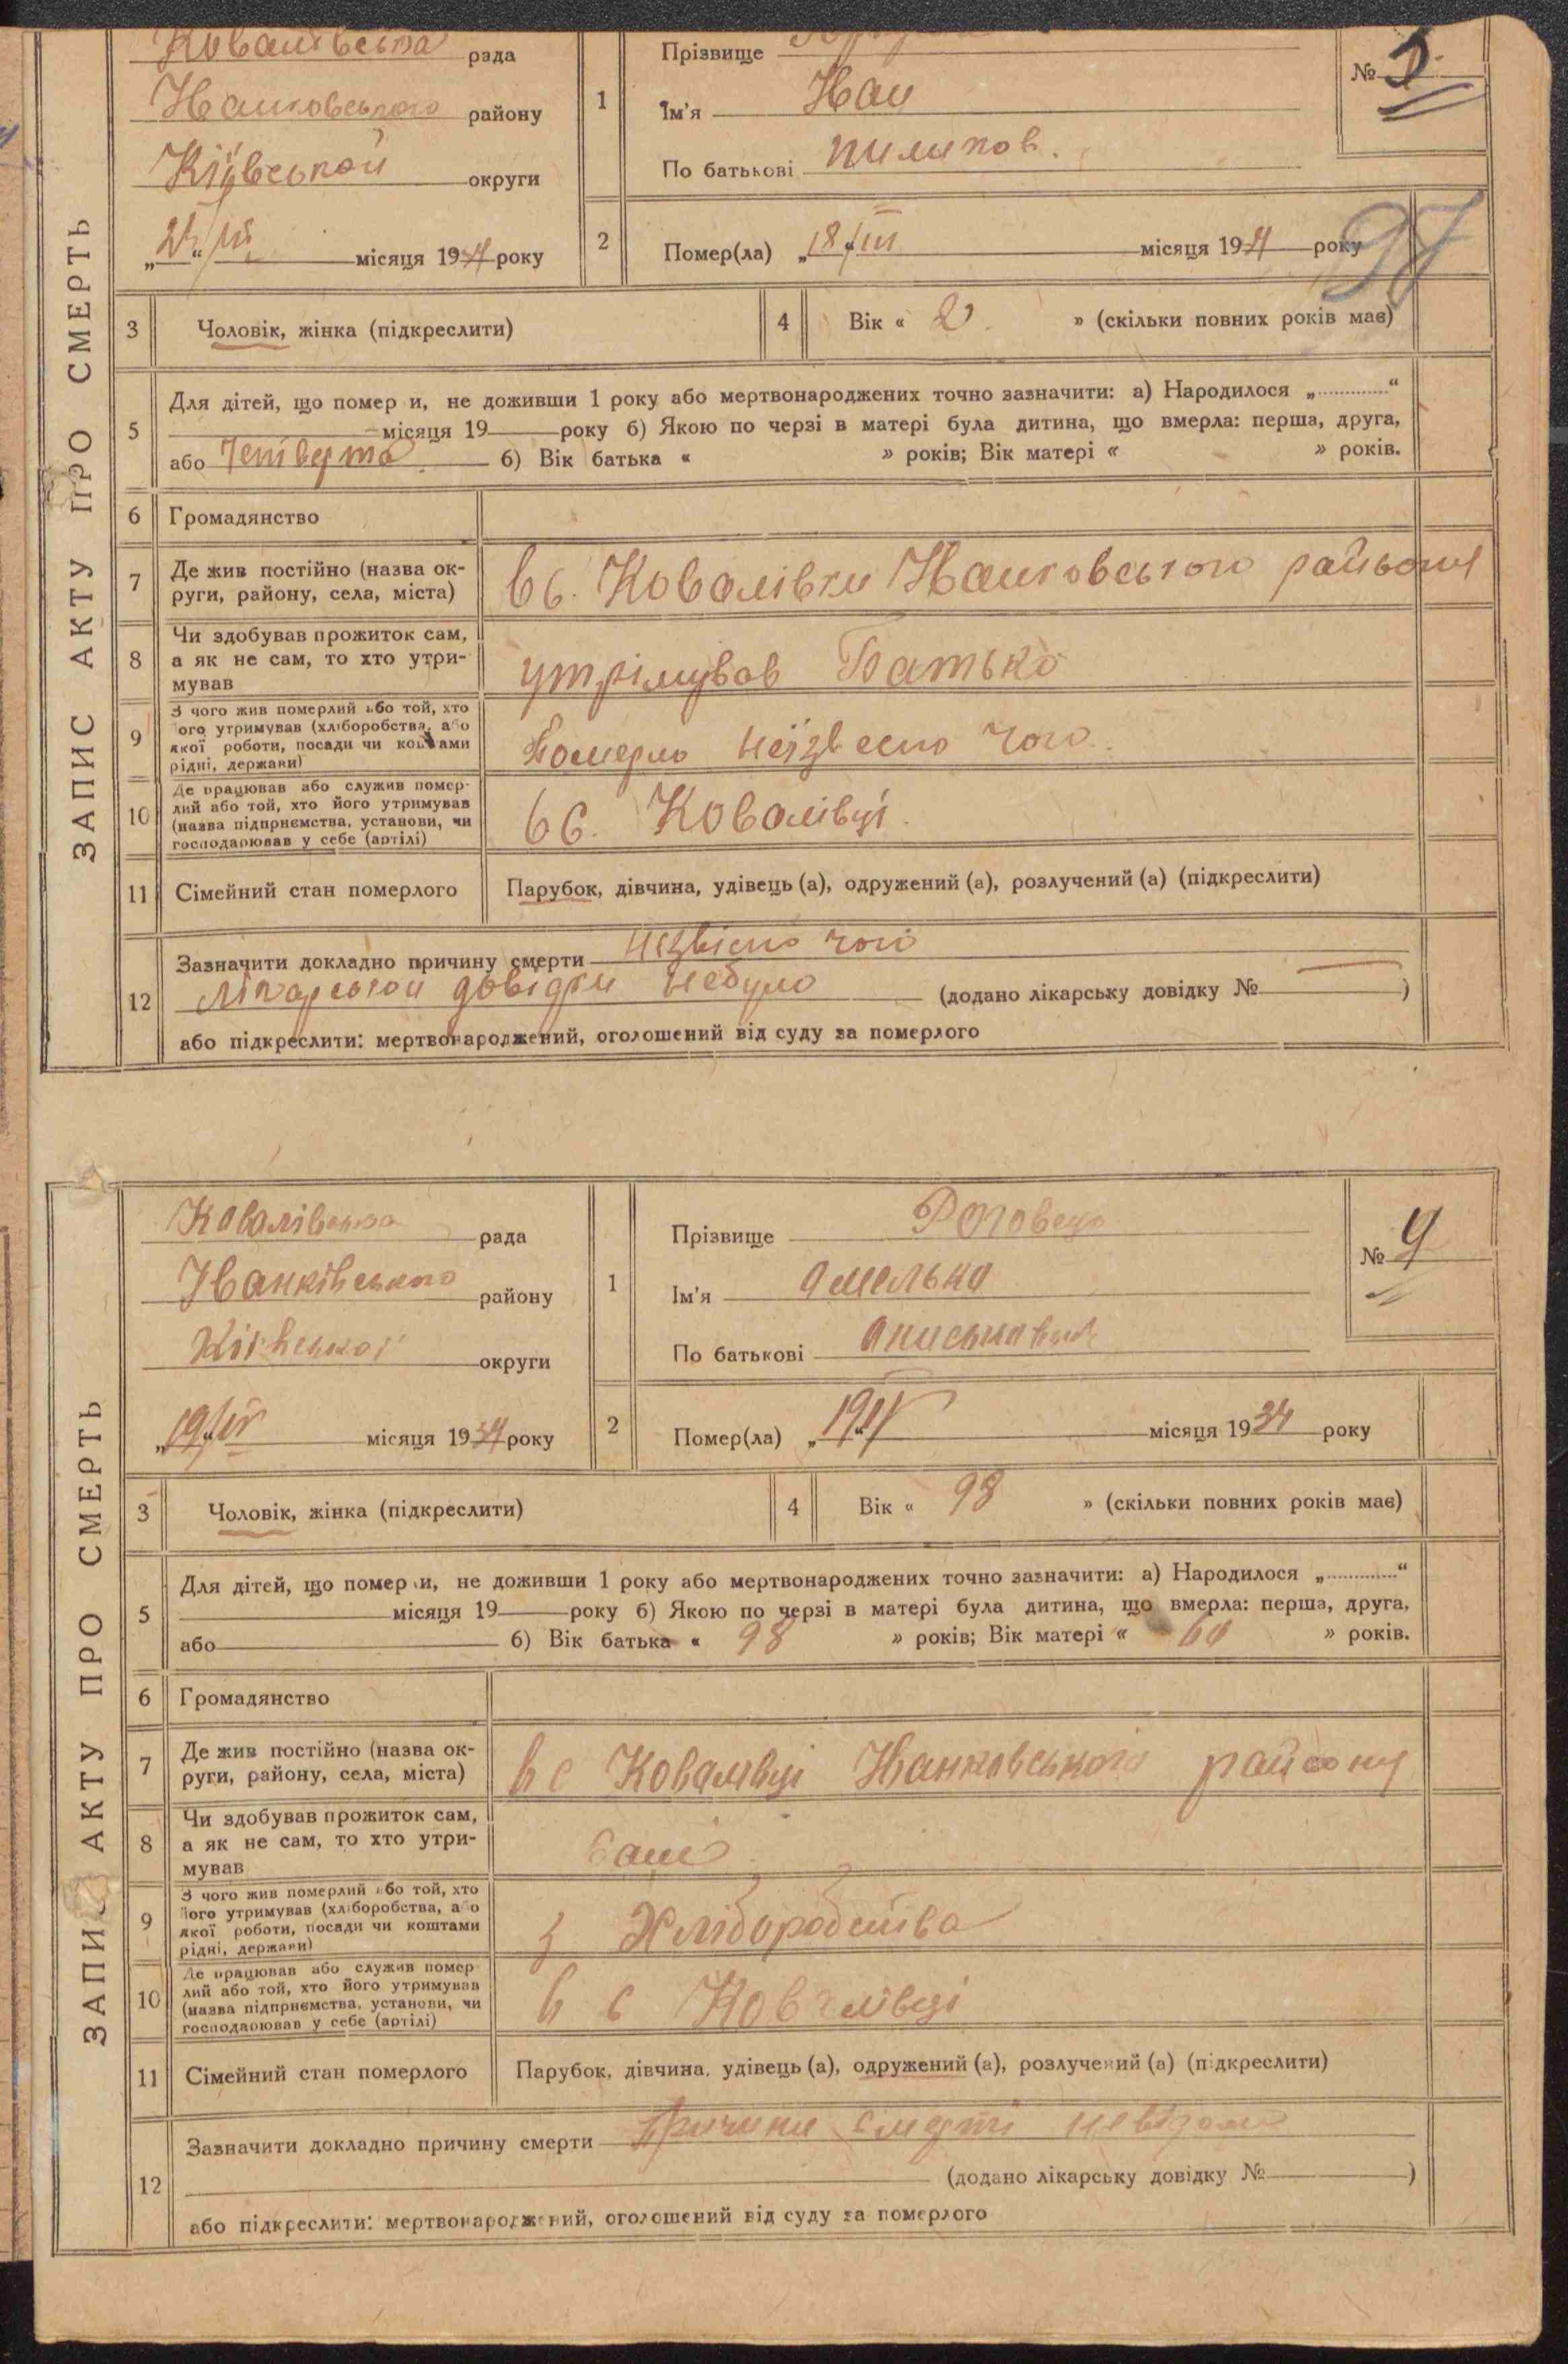 ЗАПИС АКТУ ПРО СМЕРТЬ
Ковалівська рада
району
округи
місяця 19 року
1
Прізвище
Ім'я Іван
По батькові Пилипов.
№
2
Помер(ла) „18“ III місяця 19 року
97
3 Чоловік, жінка (підкреслити)
4 Вік « 2 » (скільки повних років має)
5 Для дітей, що померли, не доживши 1 року або мертвонароджених точно зазначити: а) Народилося „............“
місяця 19 року б) Якою по черзі в матері була дитина, що вмерла: перша, друга,
або Четверта б) Вік батька « » років; Вік матері « » років.
6 Громадянство
7 Де жив постійно (назва ок-
руги, району, села, міста)
вс. Ковалівки Іванковського району
8 Чи здобував прожиток сам,
а як не сам, то хто утри-
мував
утрімував Батько
9 З чого жив померлий або той, хто
його утримував (хліборобства, або
якої роботи, посади чи коштами
рідні, держави)
Померло неізвесно чого
10 Де працював або служив помер-
лий або той, хто його утримував
(назва підприємства, установи, чи
господарював у себе (артілі)
вс. Ковалівці
11 Сімейний стан померлого
Парубок, дівчина, удівець (а), одружений (а), розлучений (а) (підкреслити)
12 Зазначити докладно причину смерти чого
небуло (додано лікарську довідку № )
або підкреслити: мертвонароджений, оголошений від суду за померлого
ЗАПИС АКТУ ПРО СМЕРТЬ
Ковалівська рада
Іванківського району
Київської округи
„19“ місяця 1934 року
1
Прізвище Роговець
Ім'я Омелько
По батькові
№ 9
2
Помер(ла) „19“ місяця 1934 року
3 Чоловік, жінка (підкреслити)
4 Вік « 98 » (скільки повних років має)
5 Для дітей, що померли, не доживши 1 року або мертвонароджених точно зазначити: а) Народилося „............“
місяця 19 року б) Якою по черзі в матері була дитина, що вмерла: перша, друга,
або б) Вік батька « 98 » років; Вік матері « 60 » років.
6 Громадянство
7 Де жив постійно (назва ок-
руги, району, села, міста)
в с Ковалівці Іванковського району
8 Чи здобував прожиток сам,
а як не сам, то хто утри-
мував
9 З чого жив померлий або той, хто
його утримував (хліборобства, або
якої роботи, посади чи коштами
рідні, держави)
з Хліборобства
10 Де працював або служив помер-
лий або той, хто його утримував
(назва підприємства, установи, чи
господарював у себе (артілі)
в с Ковалівці
11 Сімейний стан померлого
Парубок, дівчина, удівець (а), одружений (а), розлучений (а) (підкреслити)
12 Зазначити докладно причину смерти Причини смерті невідомо
(додано лікарську довідку № )
або підкреслити: мертвонароджений, оголошений від суду за померлого